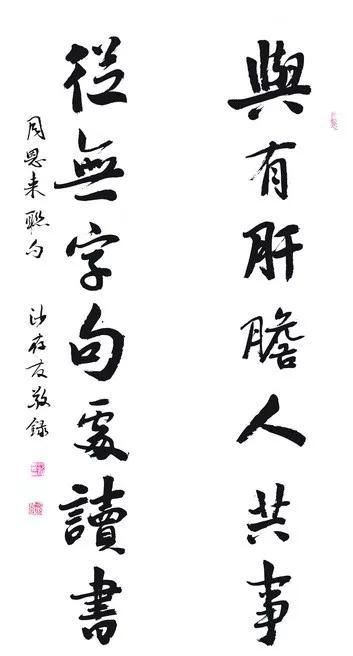 與有肝膽人共事
從無字句處讀書
周恩来聯句
沙在友敬錄